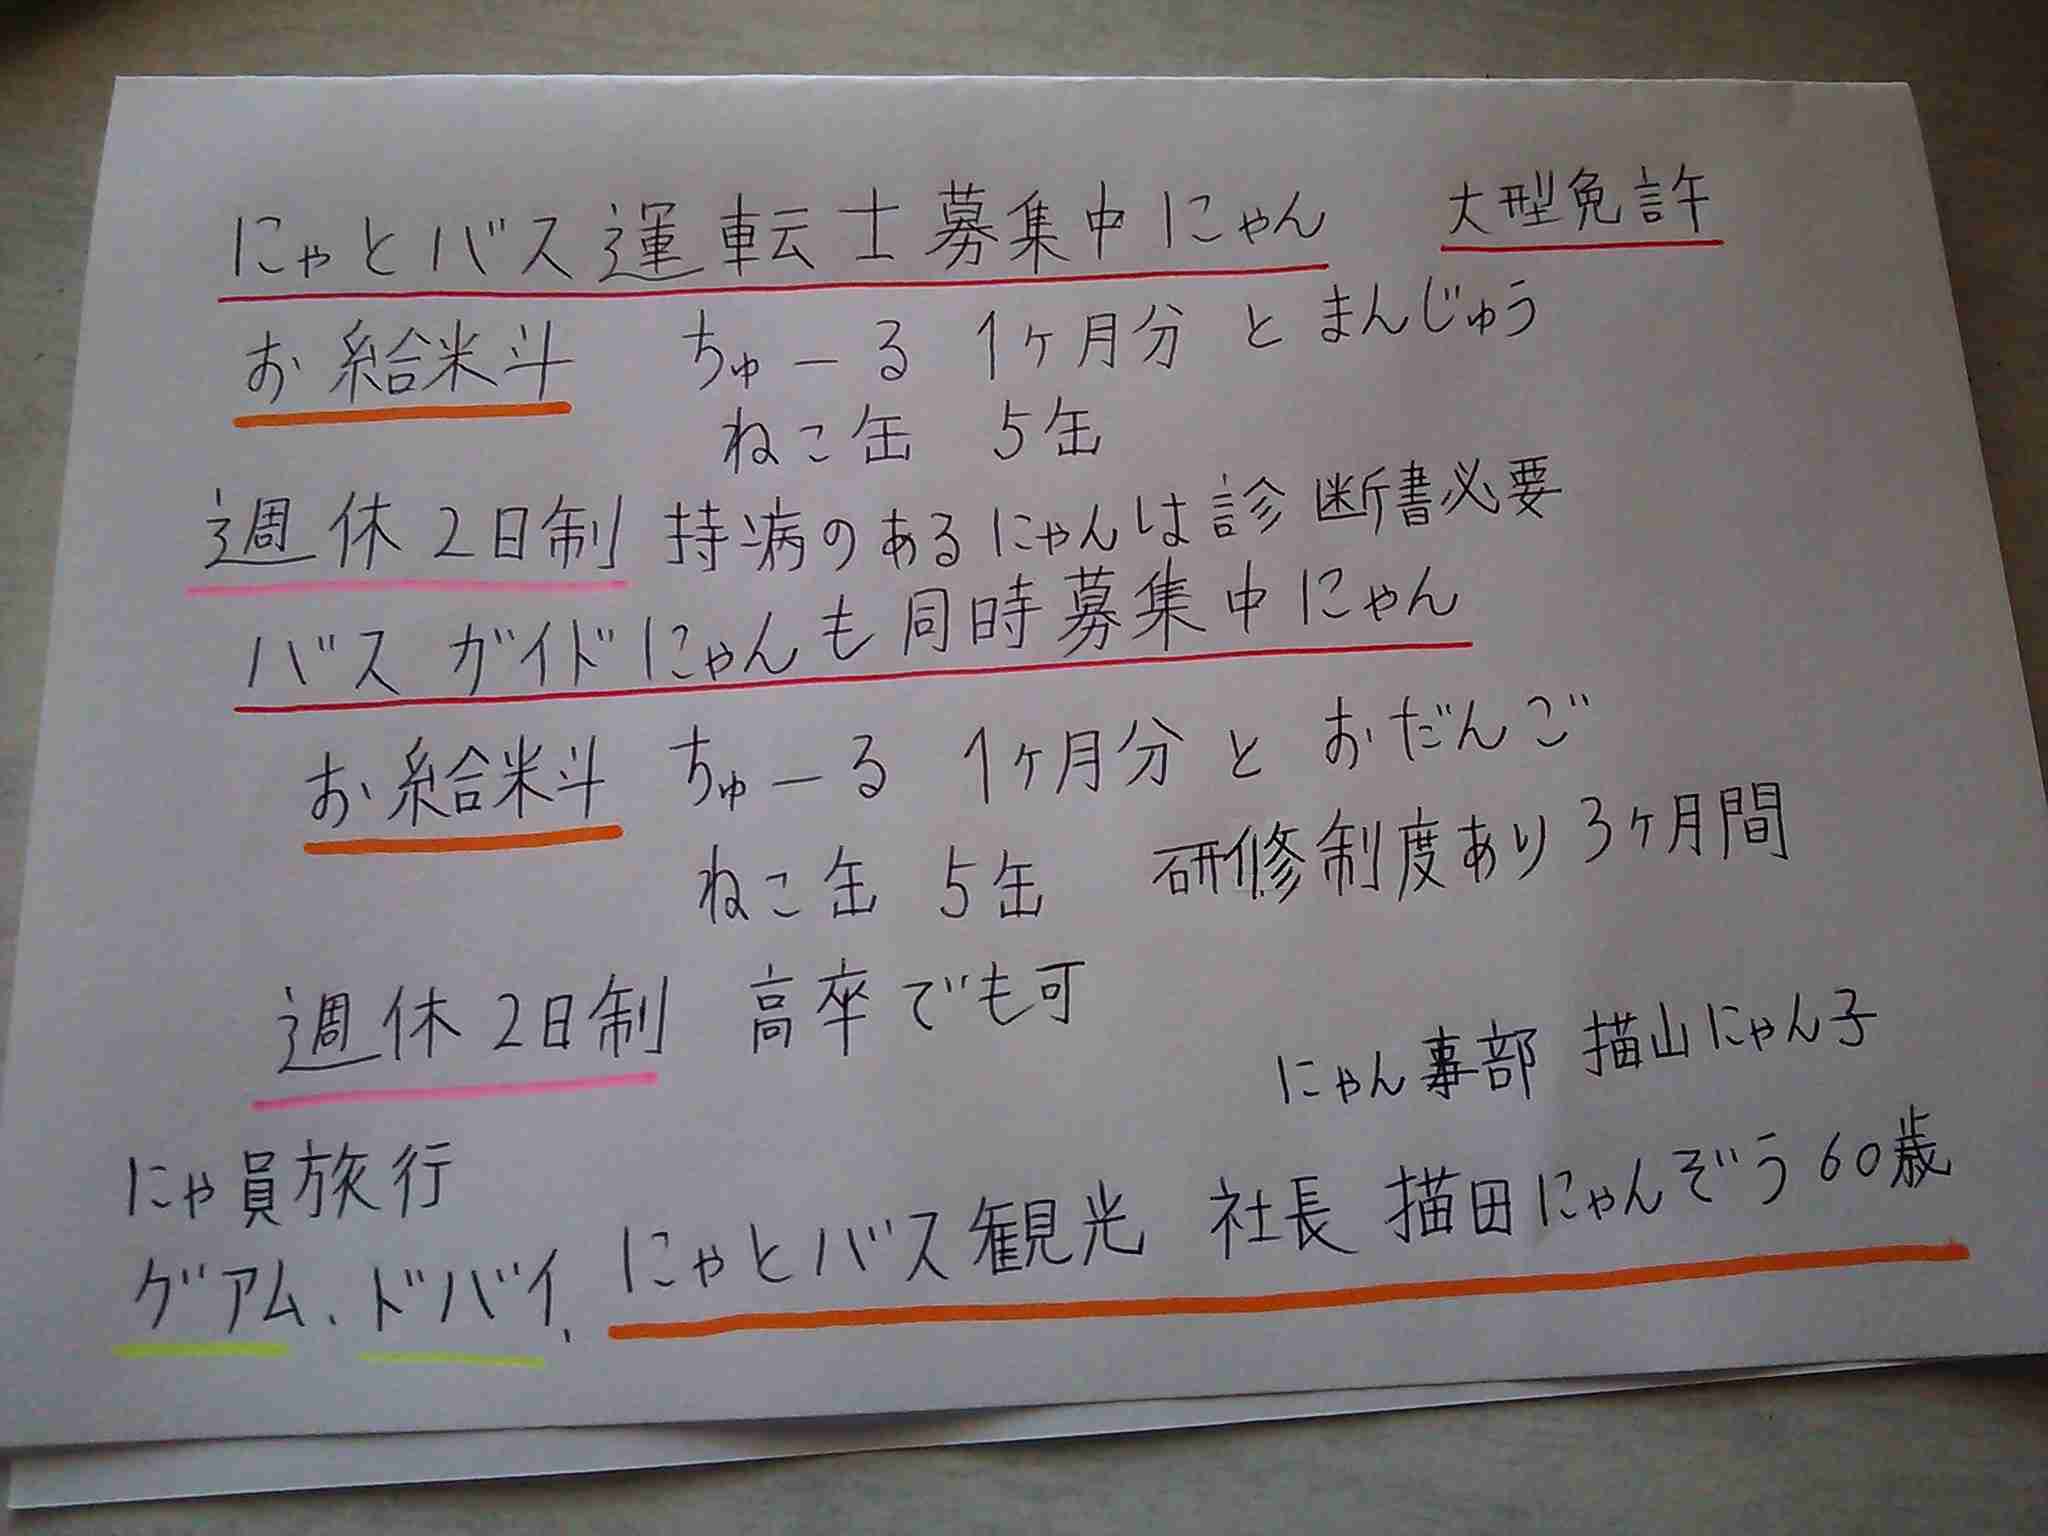 にゃとバス運転士募集中にゃん 大型免許
お給料 ちゅーる 1ヶ月分 と まんじゅう
ねこ缶 5缶
週休2日制 持病のあるにゃんは診断書必要
バスガイドにゃんも同時募集中にゃん
お給料 ちゅーる 1ヶ月分 と おだんご
ねこ缶 5缶 研修制度あり 3ヶ月間
週休2日制 高卒でも可
にゃん事部 描山にゃん子
にゃ員旅行
グアム、ドバイ、
にゃとバス観光 社長 描田にゃんぞう 60歳